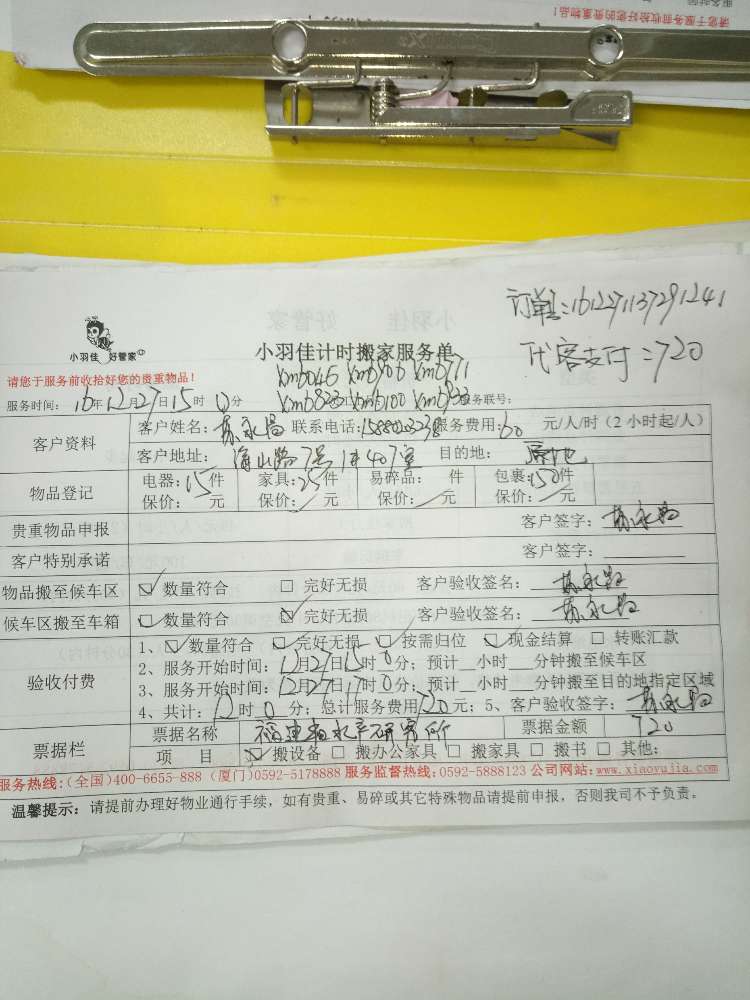 请您于服务前收拾好您的贵重物品!
订单:1612271137291241
代客支付:720
小羽佳 好管家
小羽佳计时搬家服务单
请您于服务前收拾好您的贵重物品!
服务时间: 16年12月27日15时0分 务联号:
客户资料
客户姓名: 苏永昌 联系电话: 服务费用:60 元/人/时 (2 小时起/人)
客户地址: 海山路7号 407室 目的地: 原地
物品登记
电器:15件 家具:25件 易碎品: 件 包裹:150件
保价: 元 保价: 元 保价: 元 保价: 元
贵重物品申报 客户签字: 苏永昌
客户特别承诺 客户签字:
物品搬至候车区 ☑ 数量符合 □ 完好无损 客户验收签名: 苏永昌
候车区搬至车箱 ☑ 数量符合 ☑ 完好无损 客户验收签名: 苏永昌
验收付费
1、☑数量符合 ☑完好无损 ☑按需归位 ☑现金结算 □ 转账汇款
2、服务开始时间: 12月27日15时0分; 预计 小时 分钟搬至候车区
3、服务开始时间: 12月27日17时0分; 预计 小时 分钟搬至目的地指定区域
4、共计: 12时0分; 总计服务费用720元; 5、客户验收签字: 苏永昌
票据栏
票据名称 福建省水产研究所 票据金额 720
项 目 ☑搬设备 □ 搬办公家具 □ 搬家具 □ 搬书 □ 其他:
服务热线:(全国)400-6655-888 (厦门)0592-5178888 服务监督热线:0592-5888123 公司网站:www.xiaoyujia.com
温馨提示: 请提前办理好物业通行手续, 如有贵重、易碎或其它特殊物品请提前申报, 否则我司不予负责。